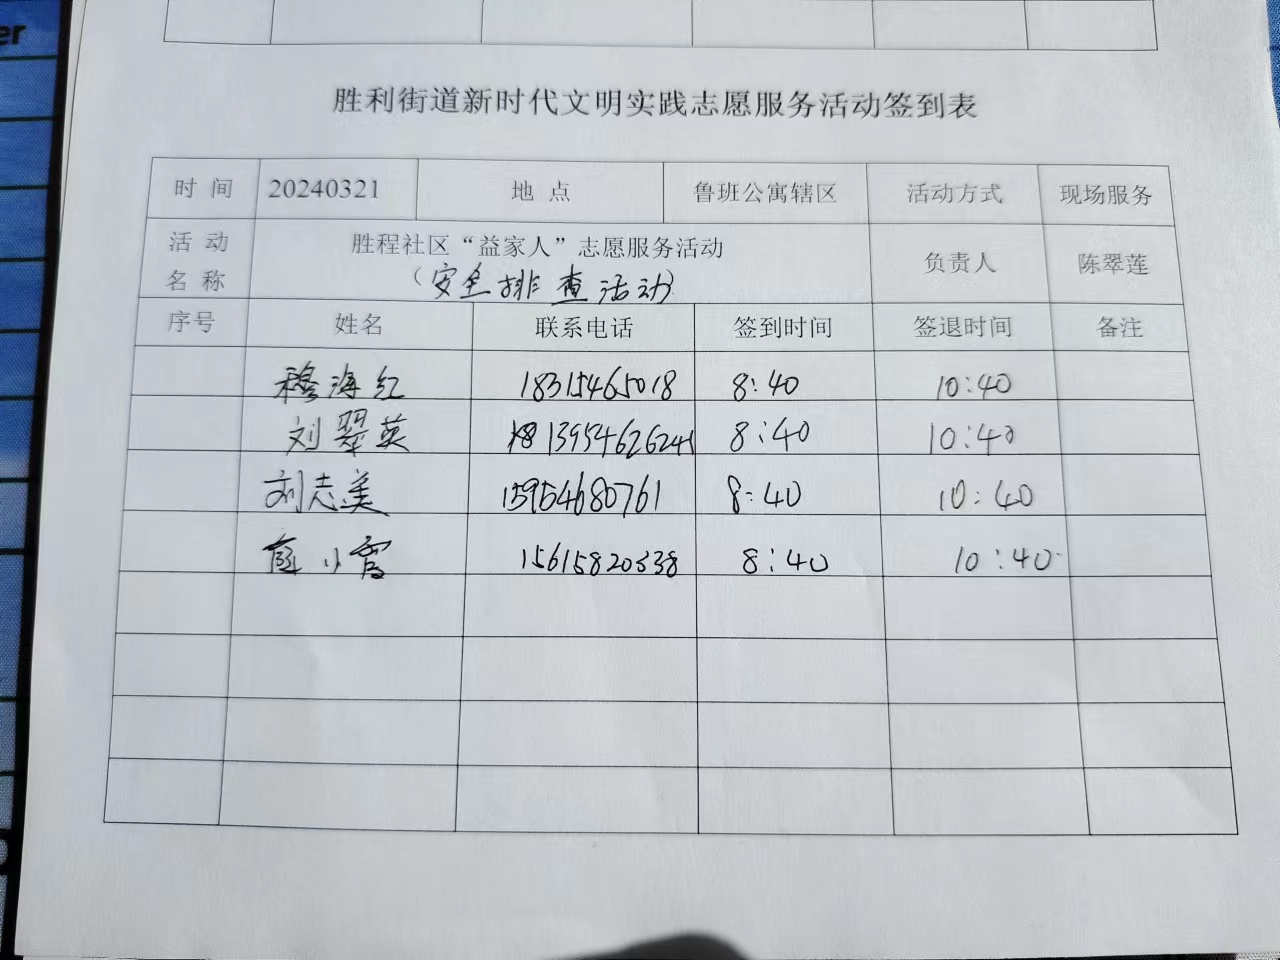 er
胜利街道新时代文明实践志愿服务活动签到表
时 间 20240321 地 点 鲁班公寓辖区 活动方式 现场服务
活 动 名 称 胜程社区“益家人”志愿服务活动 负责人 陈翠莲
（安全排查活动）
序号 姓名 联系电话 签到时间 签退时间 备注
穆海红 18315465018 8:40 10:40
刘翠英 8:40 10:40
刘志美 15954680761 8:40 10:40
小霞 15615820338 8:40 10:40